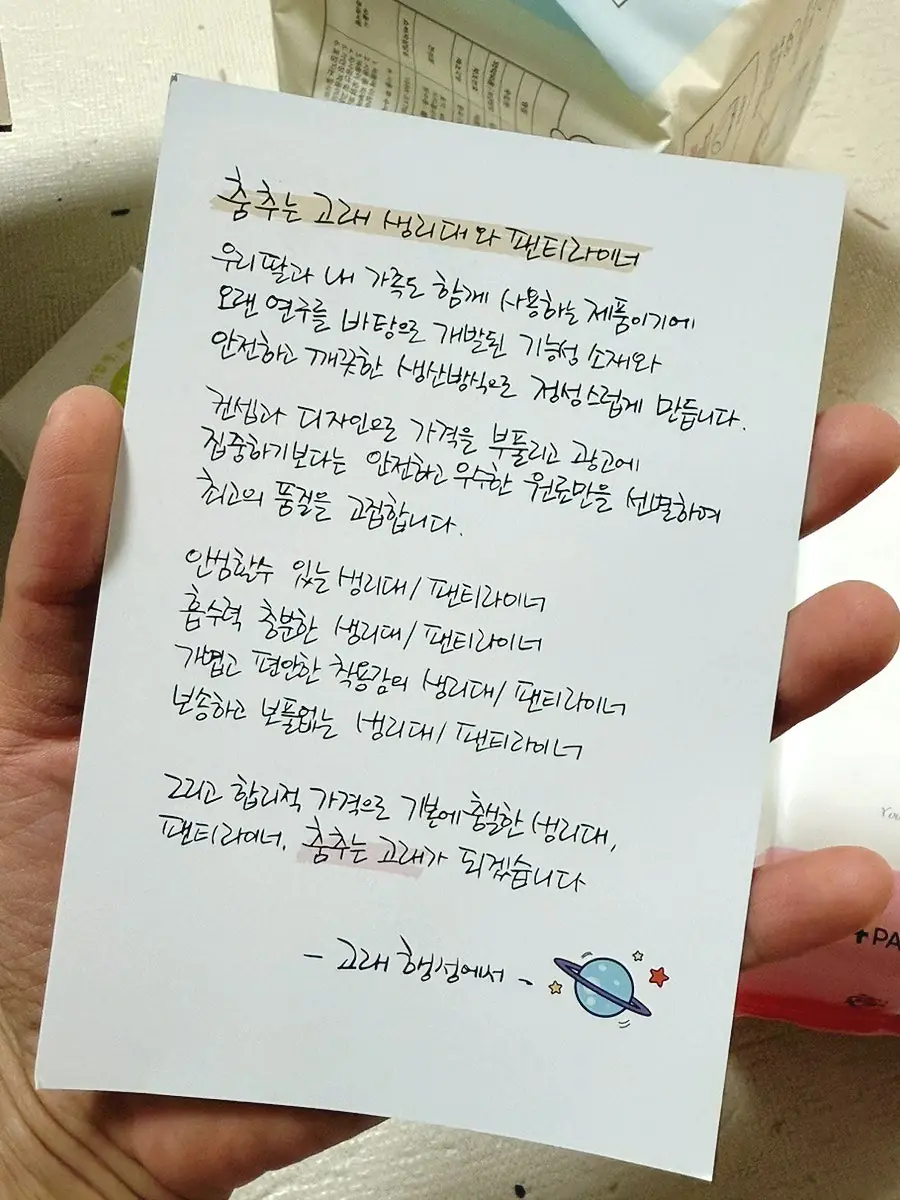 춤추는 고래 생리대와 팬티라이너
우리딸과 내 가족도 함께 사용하는 제품이기에
오랜 연구를 바탕으로 개발된 기능성 소재와
안전하고 깨끗한 생산방식으로 정성스럽게 만듭니다.
컨셉과 디자인으로 가격을 부풀리고 광고에
집중하기보다는 안전하고 우수한 원료만을 선별하여
최고의 품질을 고집합니다.
안심할수 있는 생리대/팬티라이너
흡수력 충분한 생리대/팬티라이너
가볍고 편안한 착용감의 생리대/팬티라이너
보송하고 보풀없는 생리대/팬티라이너
그리고 합리적 가격으로 기본에 충실한 생리대,
팬티라이너. 춤추는 고래가 되겠습니다
- 고래 행성에서 -
PA